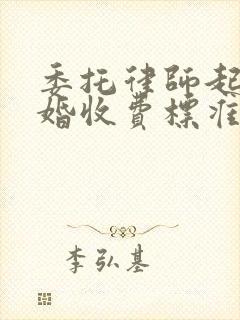 委托律師起
婚收費標准
李弘基